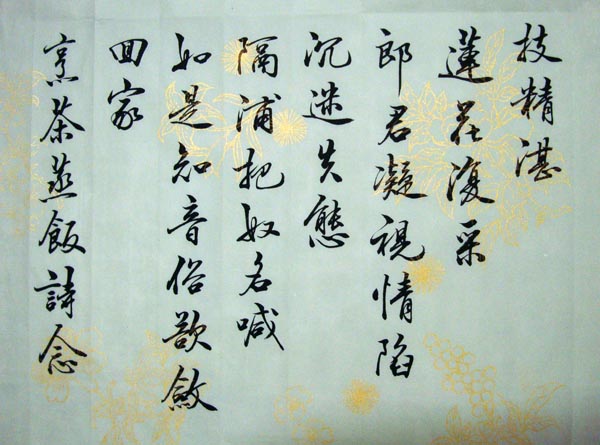 技精湛
蓮花復采
郎君凝視情陷
沉迷失態
隔浦把奴名喊
如是知音俗欲斂
回家
烹茶蒸飯詩念